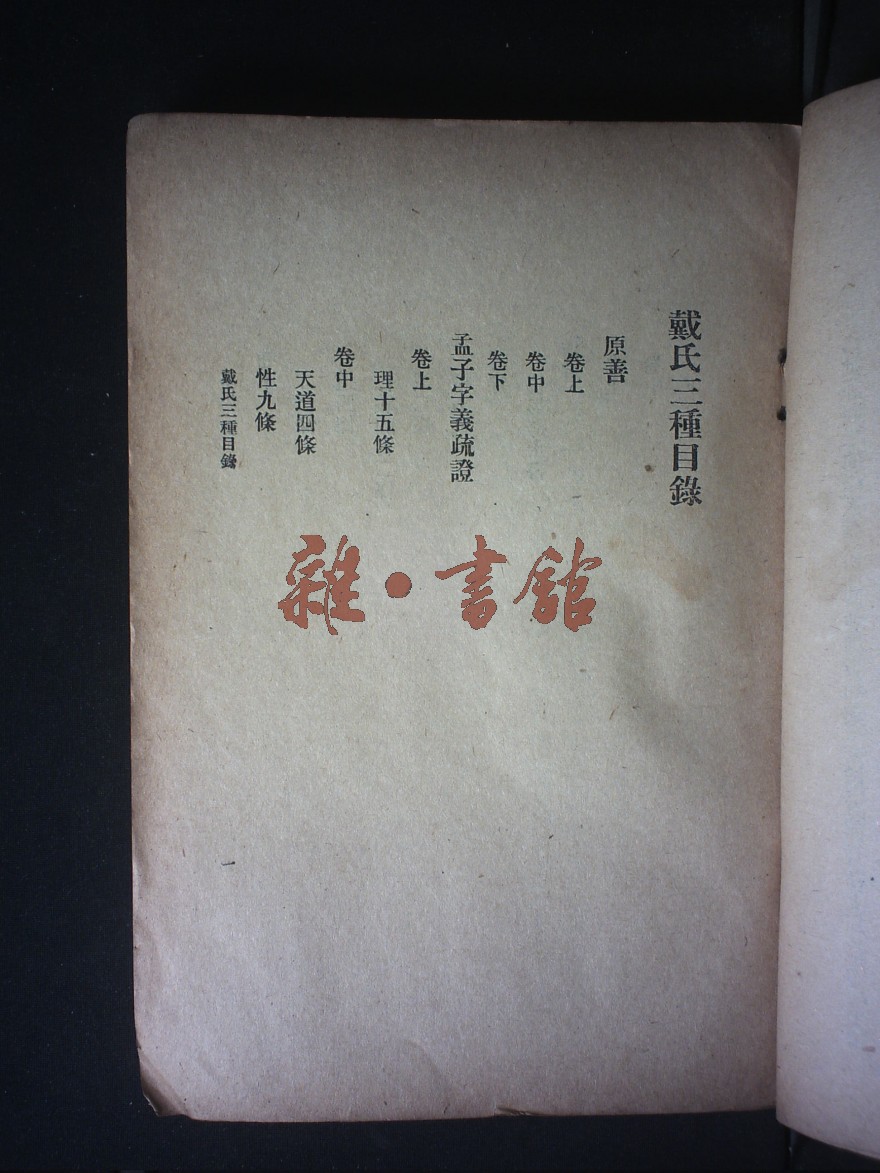 戴氏三種目錄
原善
卷上
卷中
卷下
孟子字義疏證
卷上
理十五條
卷中
天道四條
性九條
戴氏三種目錄
一
雜·書館